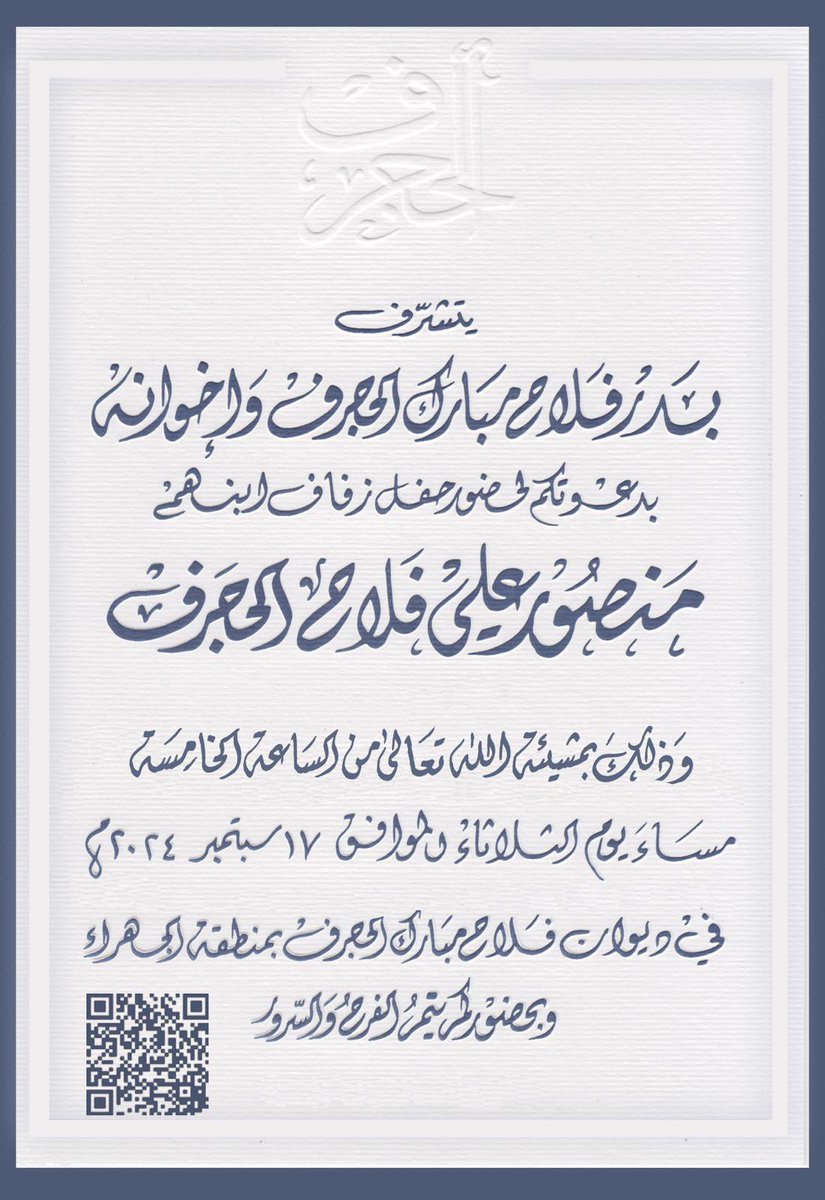 الحجرف
يتشرّف
بَدْر فَلاح مبَارك الحجرف وَإخوانه
بدعوتكم لحضور حفل زفاف ابنهمْ
مَنصُور علي فَلاح الحجَرف
وَذلك بمشيئة الله تعَالىٰ من السَاعة الخامِسَة
مسَاءَ يوم الثلاثاء والموافق ١٧ سبتمبر ٢٠٢٤م
في ديوان فَلاح مبَارك الحجرف بمنطقة الجهراء
وبحضوركم يتمُ الفرحُ وَالسّرور